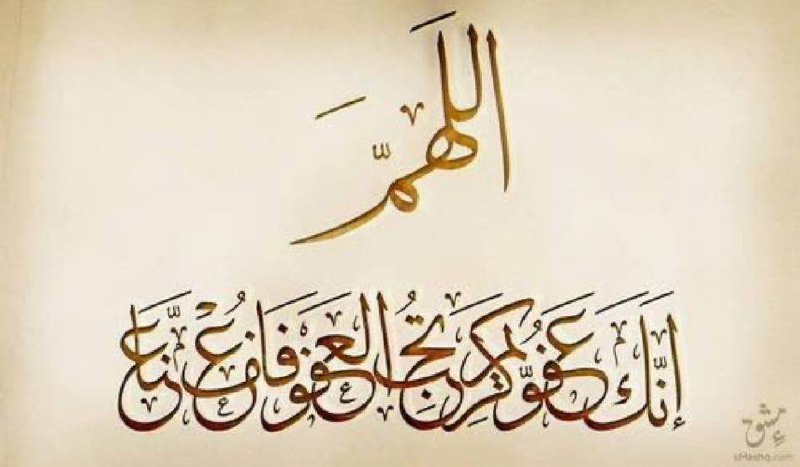 اللهم
إنك عفو كريم تحب العفو فاعف عنا
مشق
eMashq.com